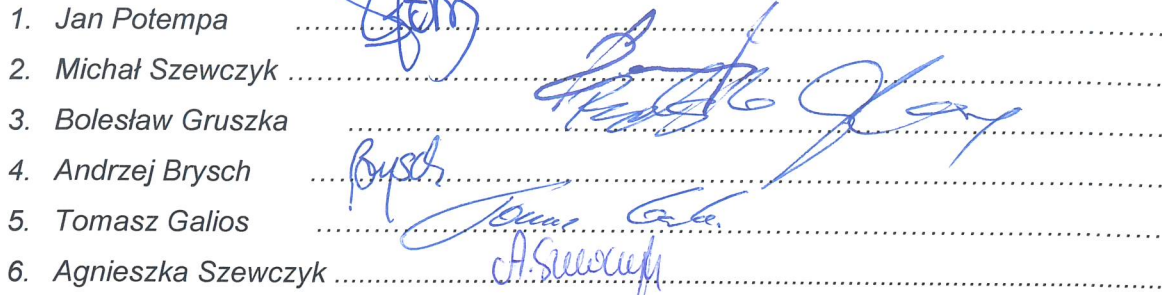 1. Jan Potempa ....................
2. Michał Szewczyk ....................
3. Bolesław Gruszka ....................
4. Andrzej Brysch .................... Brysch
5. Tomasz Galios ....................
6. Agnieszka Szewczyk .................... A. Szewczyk